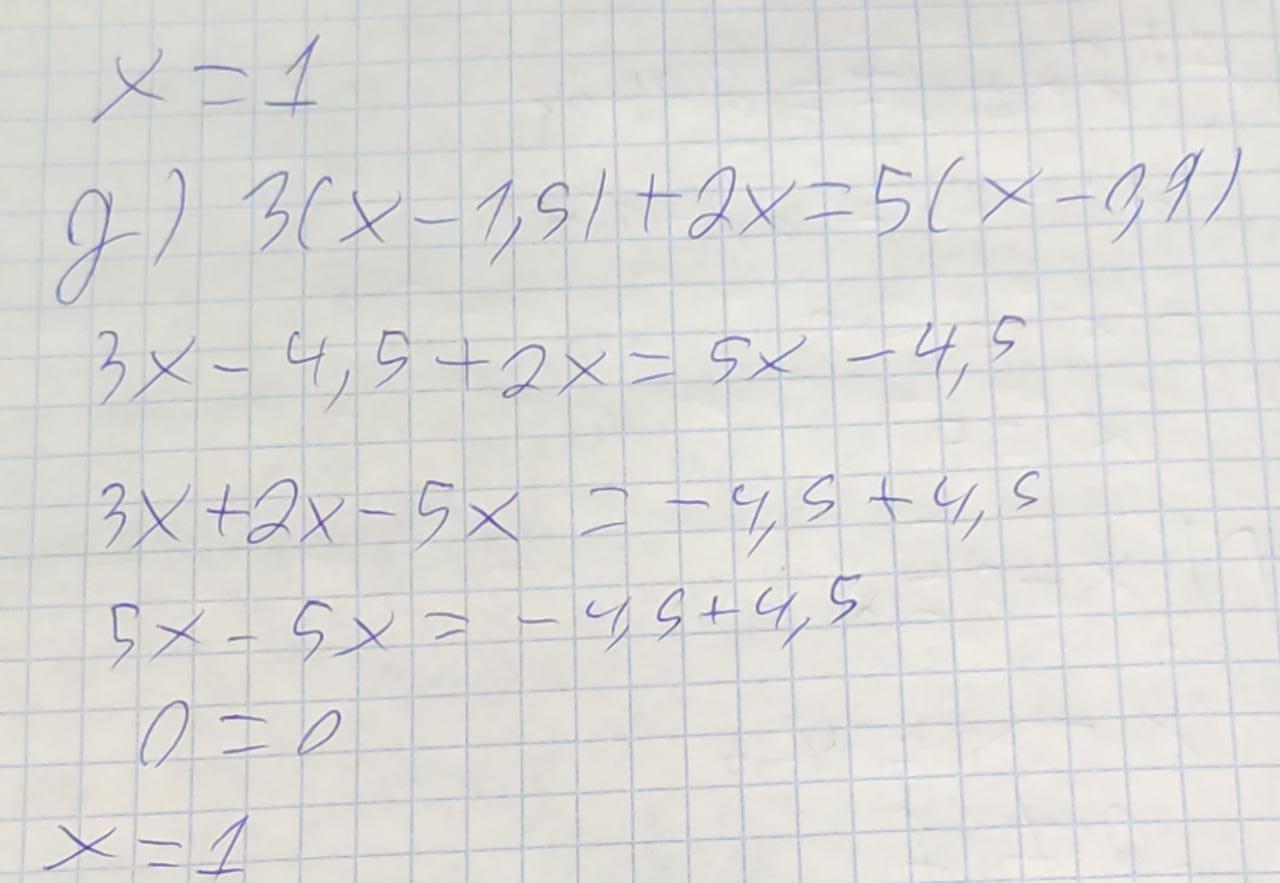 x = 1
д) 3(x - 1,5) + 2x = 5(x - 0,9)
3x - 4,5 + 2x = 5x - 4,5
3x + 2x - 5x = - 4,5 + 4,5
5x - 5x = - 4,5 + 4,5
0 = 0
x = 1